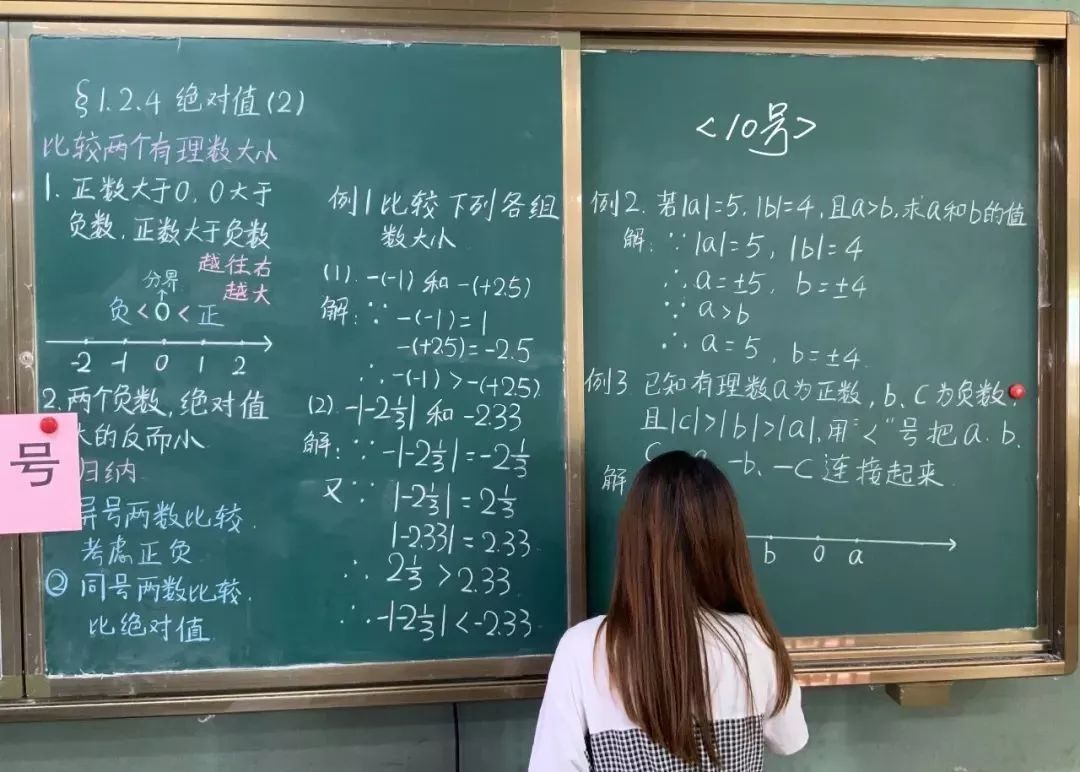 §1.2.4 绝对值(2)
比较两个有理数大小
1. 正数大于0, 0大于
负数, 正数大于负数
越往右
越大
分界
负<0<正
-2 -1 0 1 2
2. 两个负数, 绝对值
的反而小
归纳
号两数比较
考虑正负
② 同号两数比较,
比绝对值
号
例1 比较下列各组
数大小
(1). -(-1) 和 -(+2.5)
解: ∵ -(-1)=1
-(+2.5)=-2.5
∴ -(-1)>-(+2.5)
(2) -|-2⅓| 和 -2.33
解: ∵ -|-2⅓|=-2⅓
又∵ |-2⅓|=2⅓
|-2.33|=2.33
∴ 2⅓>2.33
∴ -|-2⅓|<-2.33
<10号>
例2. 若|a|=5, |b|=4, 且a>b, 求a和b的值
解: ∵ |a|=5, |b|=4
∴ a=±5, b=±4
∵ a>b
∴ a=5, b=±4
例3 已知有理数a为正数, b、c为负数,
且|c|>|b|>|a|, 用"<"号把a、b、
-b、-c连接起来
解
b 0 a